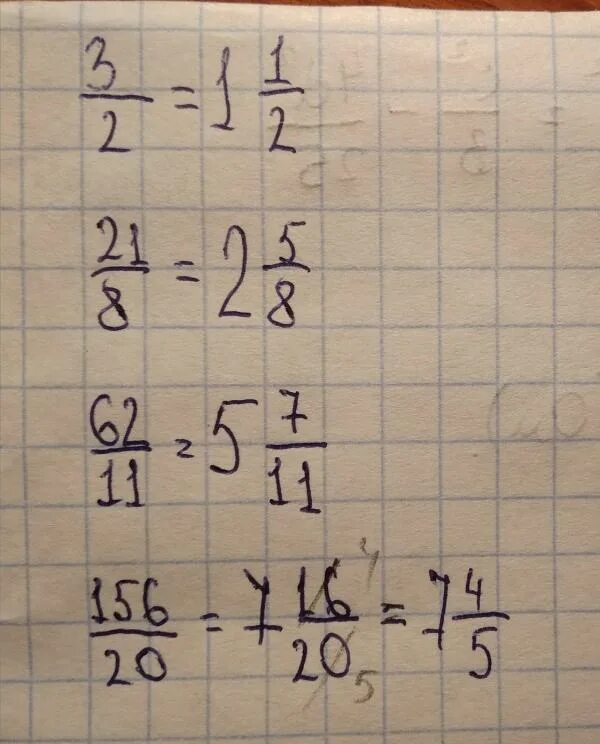 3/2 = 1 1/2
21/8 = 2 5/8
62/11 = 5 7/11
156/20 = 7 16/20 4 5 = 7 4/5